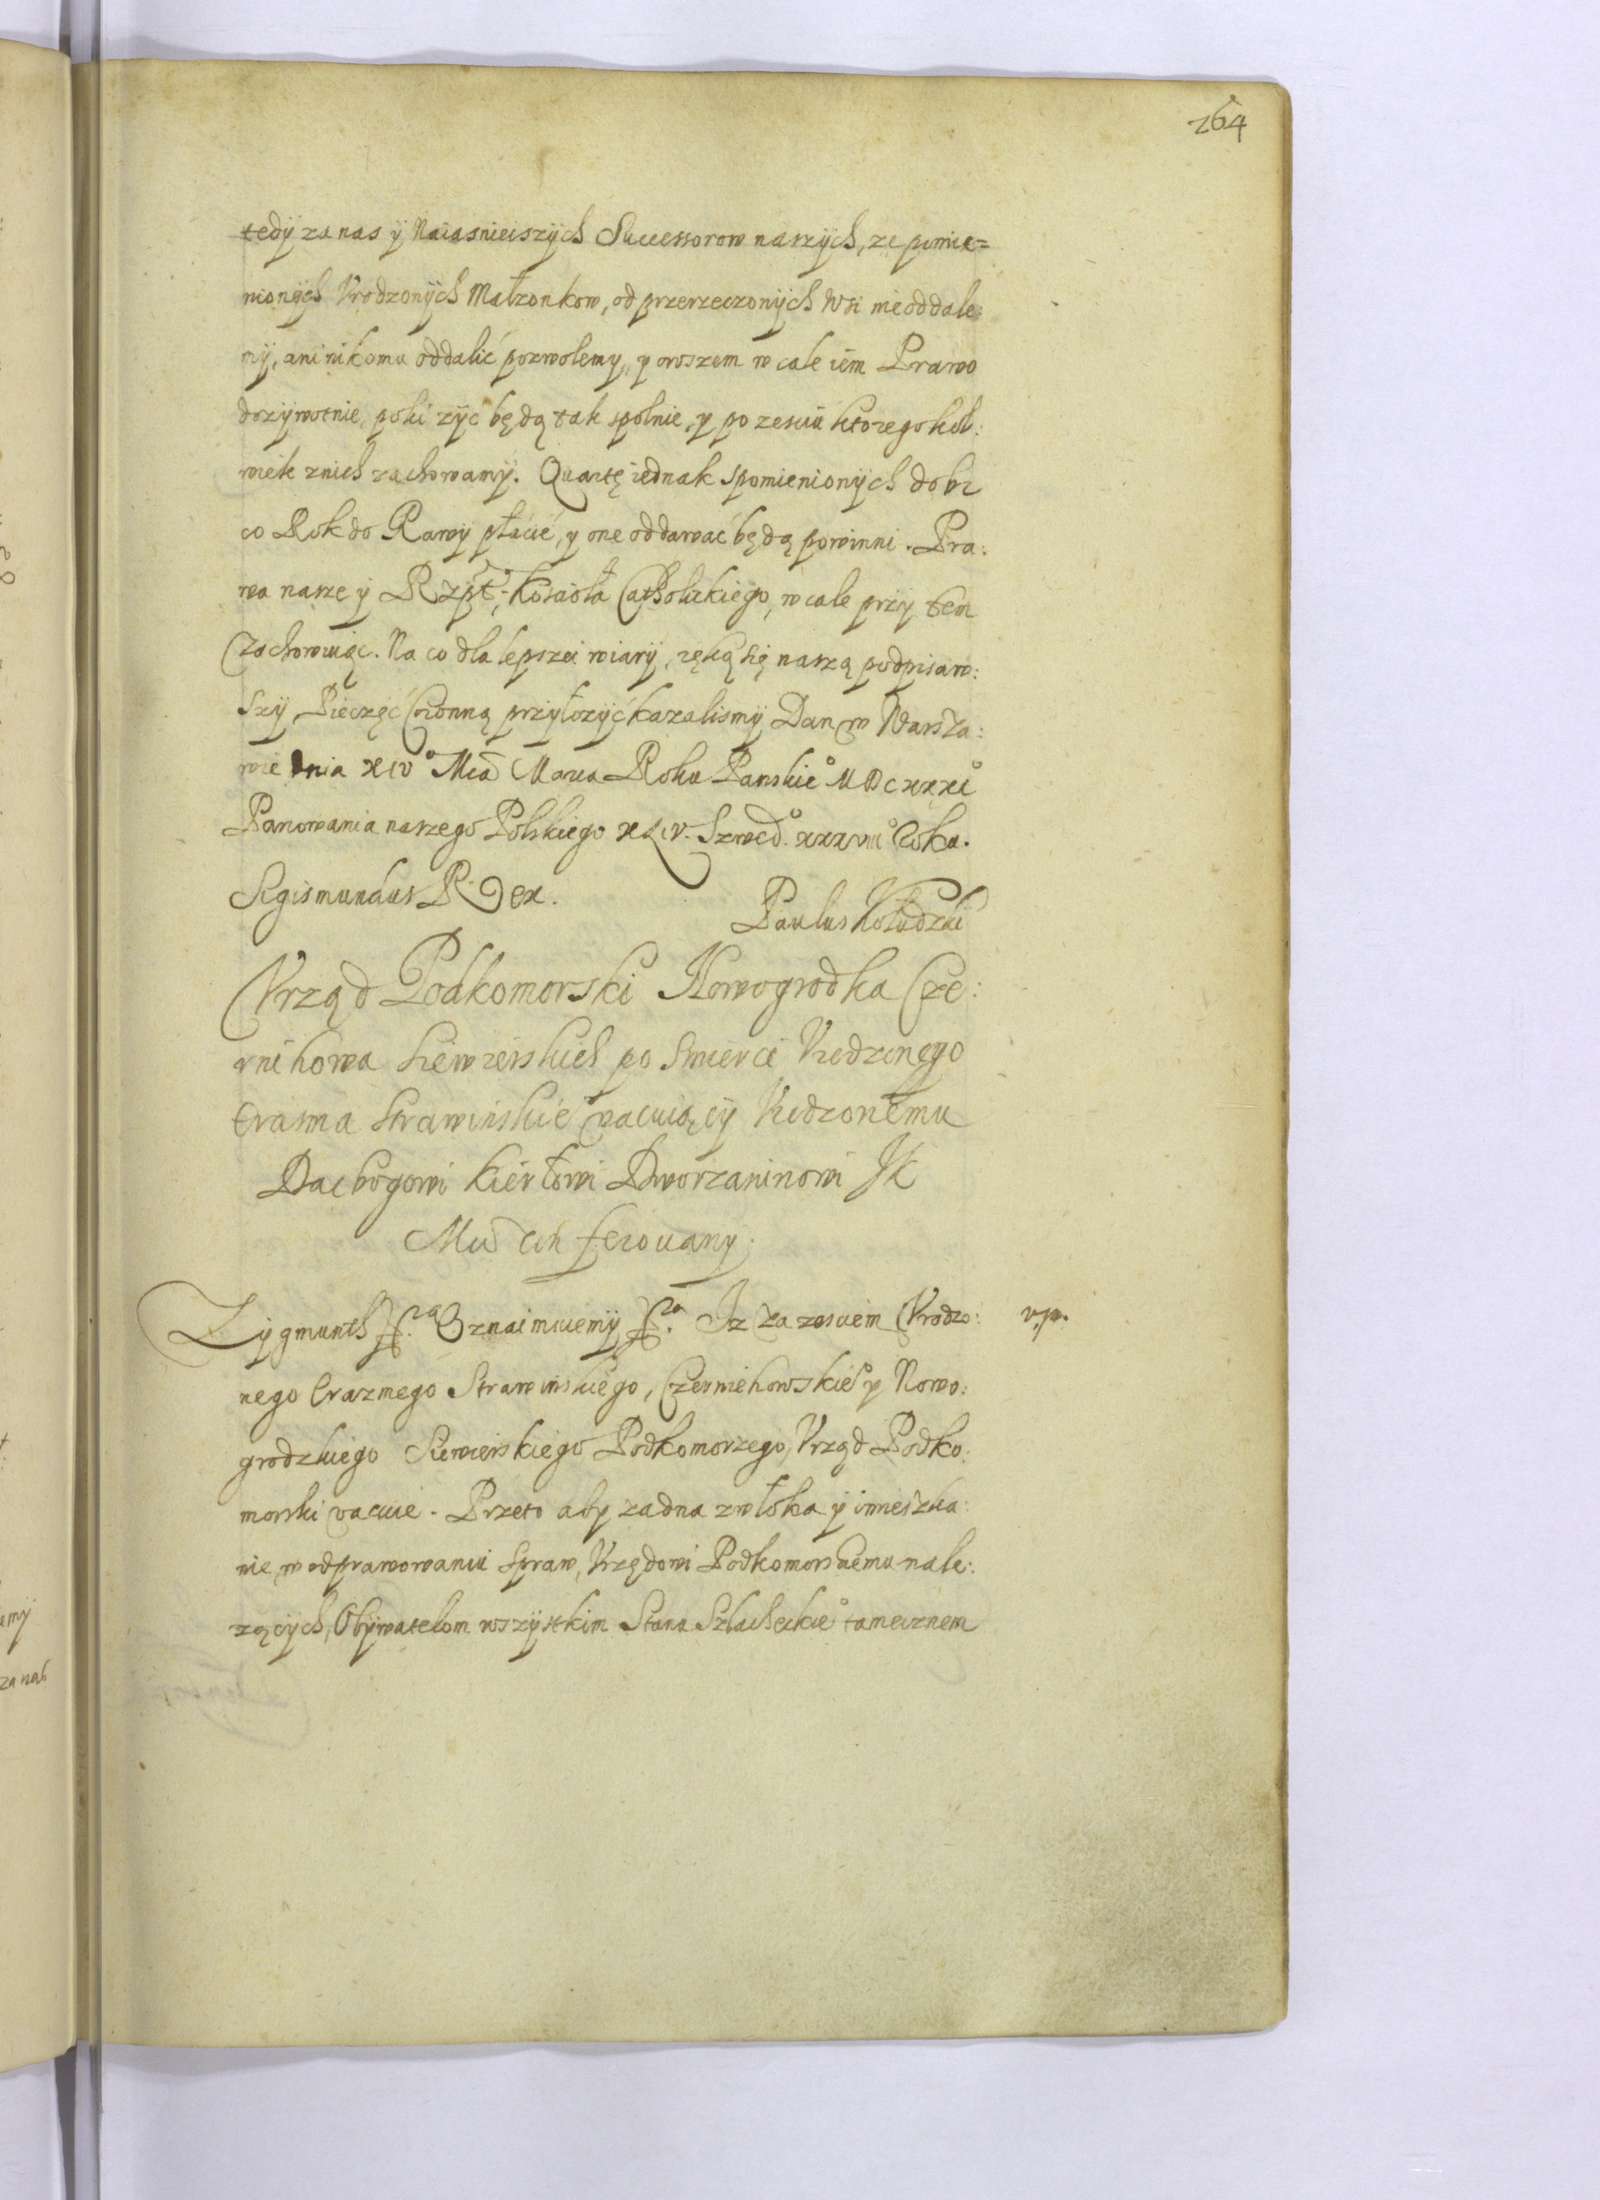 264
tedy za nas y Naiasnieiszych Successorow naszych, ze pomie=
nionych Vrodzonych Małzonkow, od przerzeczonych Wsi nieoddale:
my, ani nikomu oddalić pozwolemy, y owszem w cale iem Prawo
dozywotnie, poki zyc będą tak spolnie, y po zesciu ktoregokol:
wiek znich zachowamy. Quartę iednak spomienionych dobr
co Rok do Rawy płacić, y one oddawać będą powinni. Pra:
wa nasze y Rzptey, Kościoła Catholickiego, w cale przy tem
Zachowuiąc. Na co dla lepszei wiary, ręką się naszą podpisaw:
szy, Pieczęć Coronną przyłozyć kazalismy Dan w Warsza:
wie dnia XIV° Mca Marca Roku Panskie° MDCXXXI°
Panowania naszego Polskiego XLIV. Szwed° XXXVIII° Roku.
Sigismundus Rex.
Paulus Kołudzki
Vrząd Podkomorski Nowogrodka Cze:
rnihowa Siewierskich po smierci Vrodzonego
Erasma Strawinskie° vacuiący Vrodzonemu
Dacbogowi Kierłowi Dworzaninowi JK
Mci conferowany.
Zygmunth &c. Oznaimuiemy &c. Iz za zesciem Vrodzo:
v. p.
nego Erazmego Strawinskiego, Czerniehowskie° y Nowo:
grodzkiego Siewierskiego Podkomorzego, Vrząd Podko:
morski vacuie. Przeto aby zadna zwłoka y omieszka:
nie, w odprawowaniu spraw, Vrzędowi Podkomorskiemu nale:
zących, Obywatelom wszystkim Stanu Szlacheckie° tamecznem